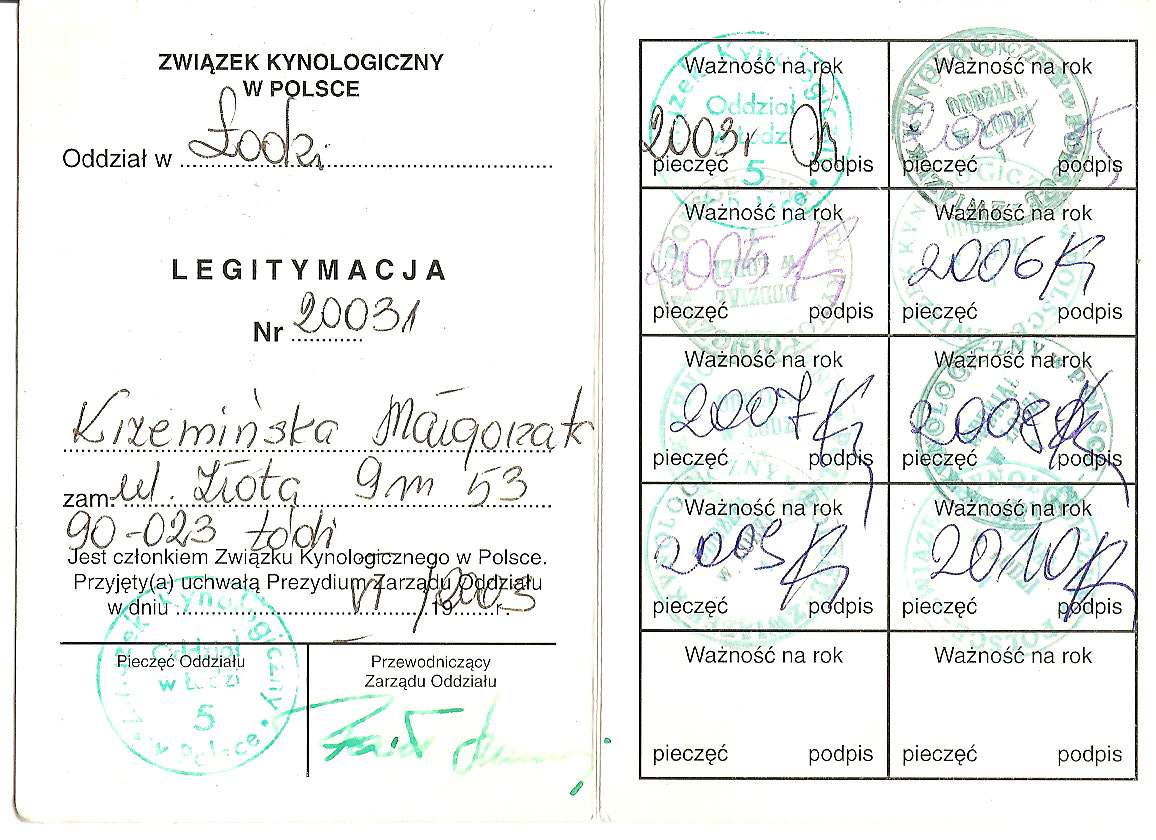 ZWIĄZEK KYNOLOGICZNY
W POLSCE
Oddział w Łodzi
LEGITYMACJA
Nr 20031
Krzemińska Małgorzat
zam. ul. Złota 9 m 53
90-023 Łódź
Jest członkiem Związku Kynologicznego w Polsce.
Przyjęty(a) uchwałą Prezydium Zarządu Oddziału
w dniu VI / 2003 19 r.
Pieczęć Oddziału
Przewodniczący
Zarządu Oddziału
Oddział
w Łodzi
5
Ważność na rok
2003r
pieczęć podpis
Oddział
5
Ważność na rok
2004
pieczęć podpis
ODDZIAŁ
W ŁODZI
Ważność na rok
2005
pieczęć podpis
Ważność na rok
2006
pieczęć podpis
Ważność na rok
2007
pieczęć podpis
Ważność na rok
2008
pieczęć podpis
Ważność na rok
2009
pieczęć podpis
Ważność na rok
2010
pieczęć podpis
Ważność na rok
pieczęć podpis
Ważność na rok
pieczęć podpis